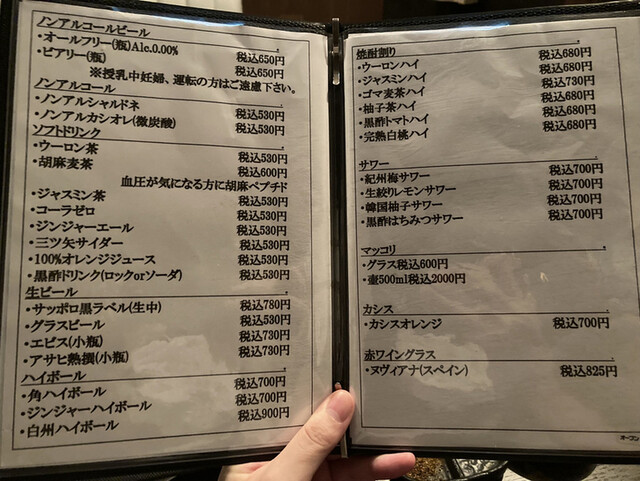 ノンアルコールビール
・オールフリー(瓶)Alc.0.00% 税込650円
・ビアリー(瓶) 税込650円
※授乳中妊婦、運転の方はご遠慮下さい。
ノンアルコール
・ノンアルシャルドネ 税込530円
・ノンアルカシオレ(微炭酸) 税込530円
ソフトドリンク
・ウーロン茶 税込530円
・胡麻麦茶 税込600円
血圧が気になる方に胡麻ペプチド
・ジャスミン茶 税込530円
・コーラゼロ 税込530円
・ジンジャーエール 税込530円
・三ツ矢サイダー 税込530円
・100%オレンジジュース 税込530円
・黒酢ドリンク(ロックorソーダ) 税込530円
生ビール
・サッポロ黒ラベル(生中) 税込780円
・グラスビール 税込530円
・エビス(小瓶) 税込730円
・アサヒ熟撰(小瓶) 税込730円
ハイボール
・角ハイボール 税込700円
・ジンジャーハイボール 税込700円
・白州ハイボール 税込900円
焼酎割り
・ウーロンハイ 税込680円
・ジャスミンハイ 税込680円
・ゴマ麦茶ハイ 税込730円
・柚子茶ハイ 税込680円
・黒酢トマトハイ 税込680円
・完熟白桃ハイ 税込680円
サワー
・紀州梅サワー 税込700円
・生絞りレモンサワー 税込700円
・韓国柚子サワー 税込700円
・黒酢はちみつサワー 税込700円
マッコリ
・グラス税込600円
・壷500ml税込2000円
カシス
・カシスオレンジ 税込700円
赤ワイングラス
・ヌヴィアナ(スペイン) 税込825円
オープン